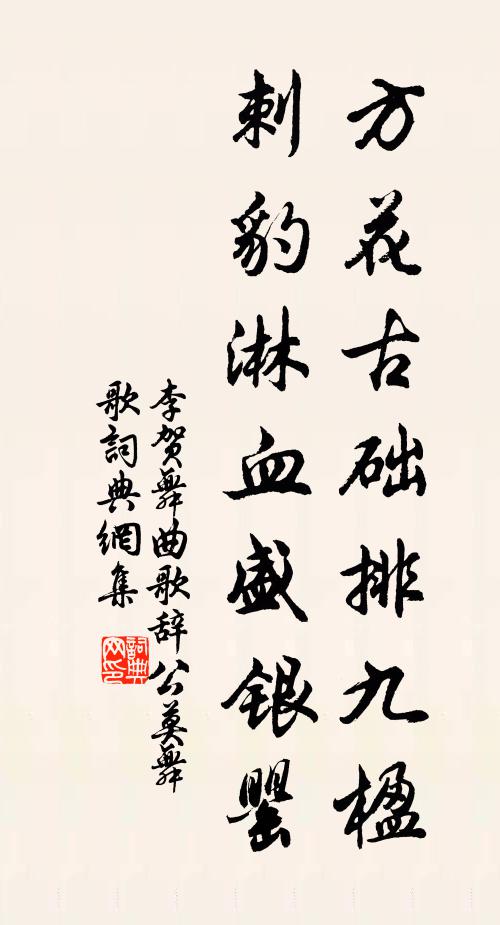 方花古础排九楹
刺豹淋血盛银罂
李贺舞曲歌辞公莫舞
歌詞典網集
詞典網印